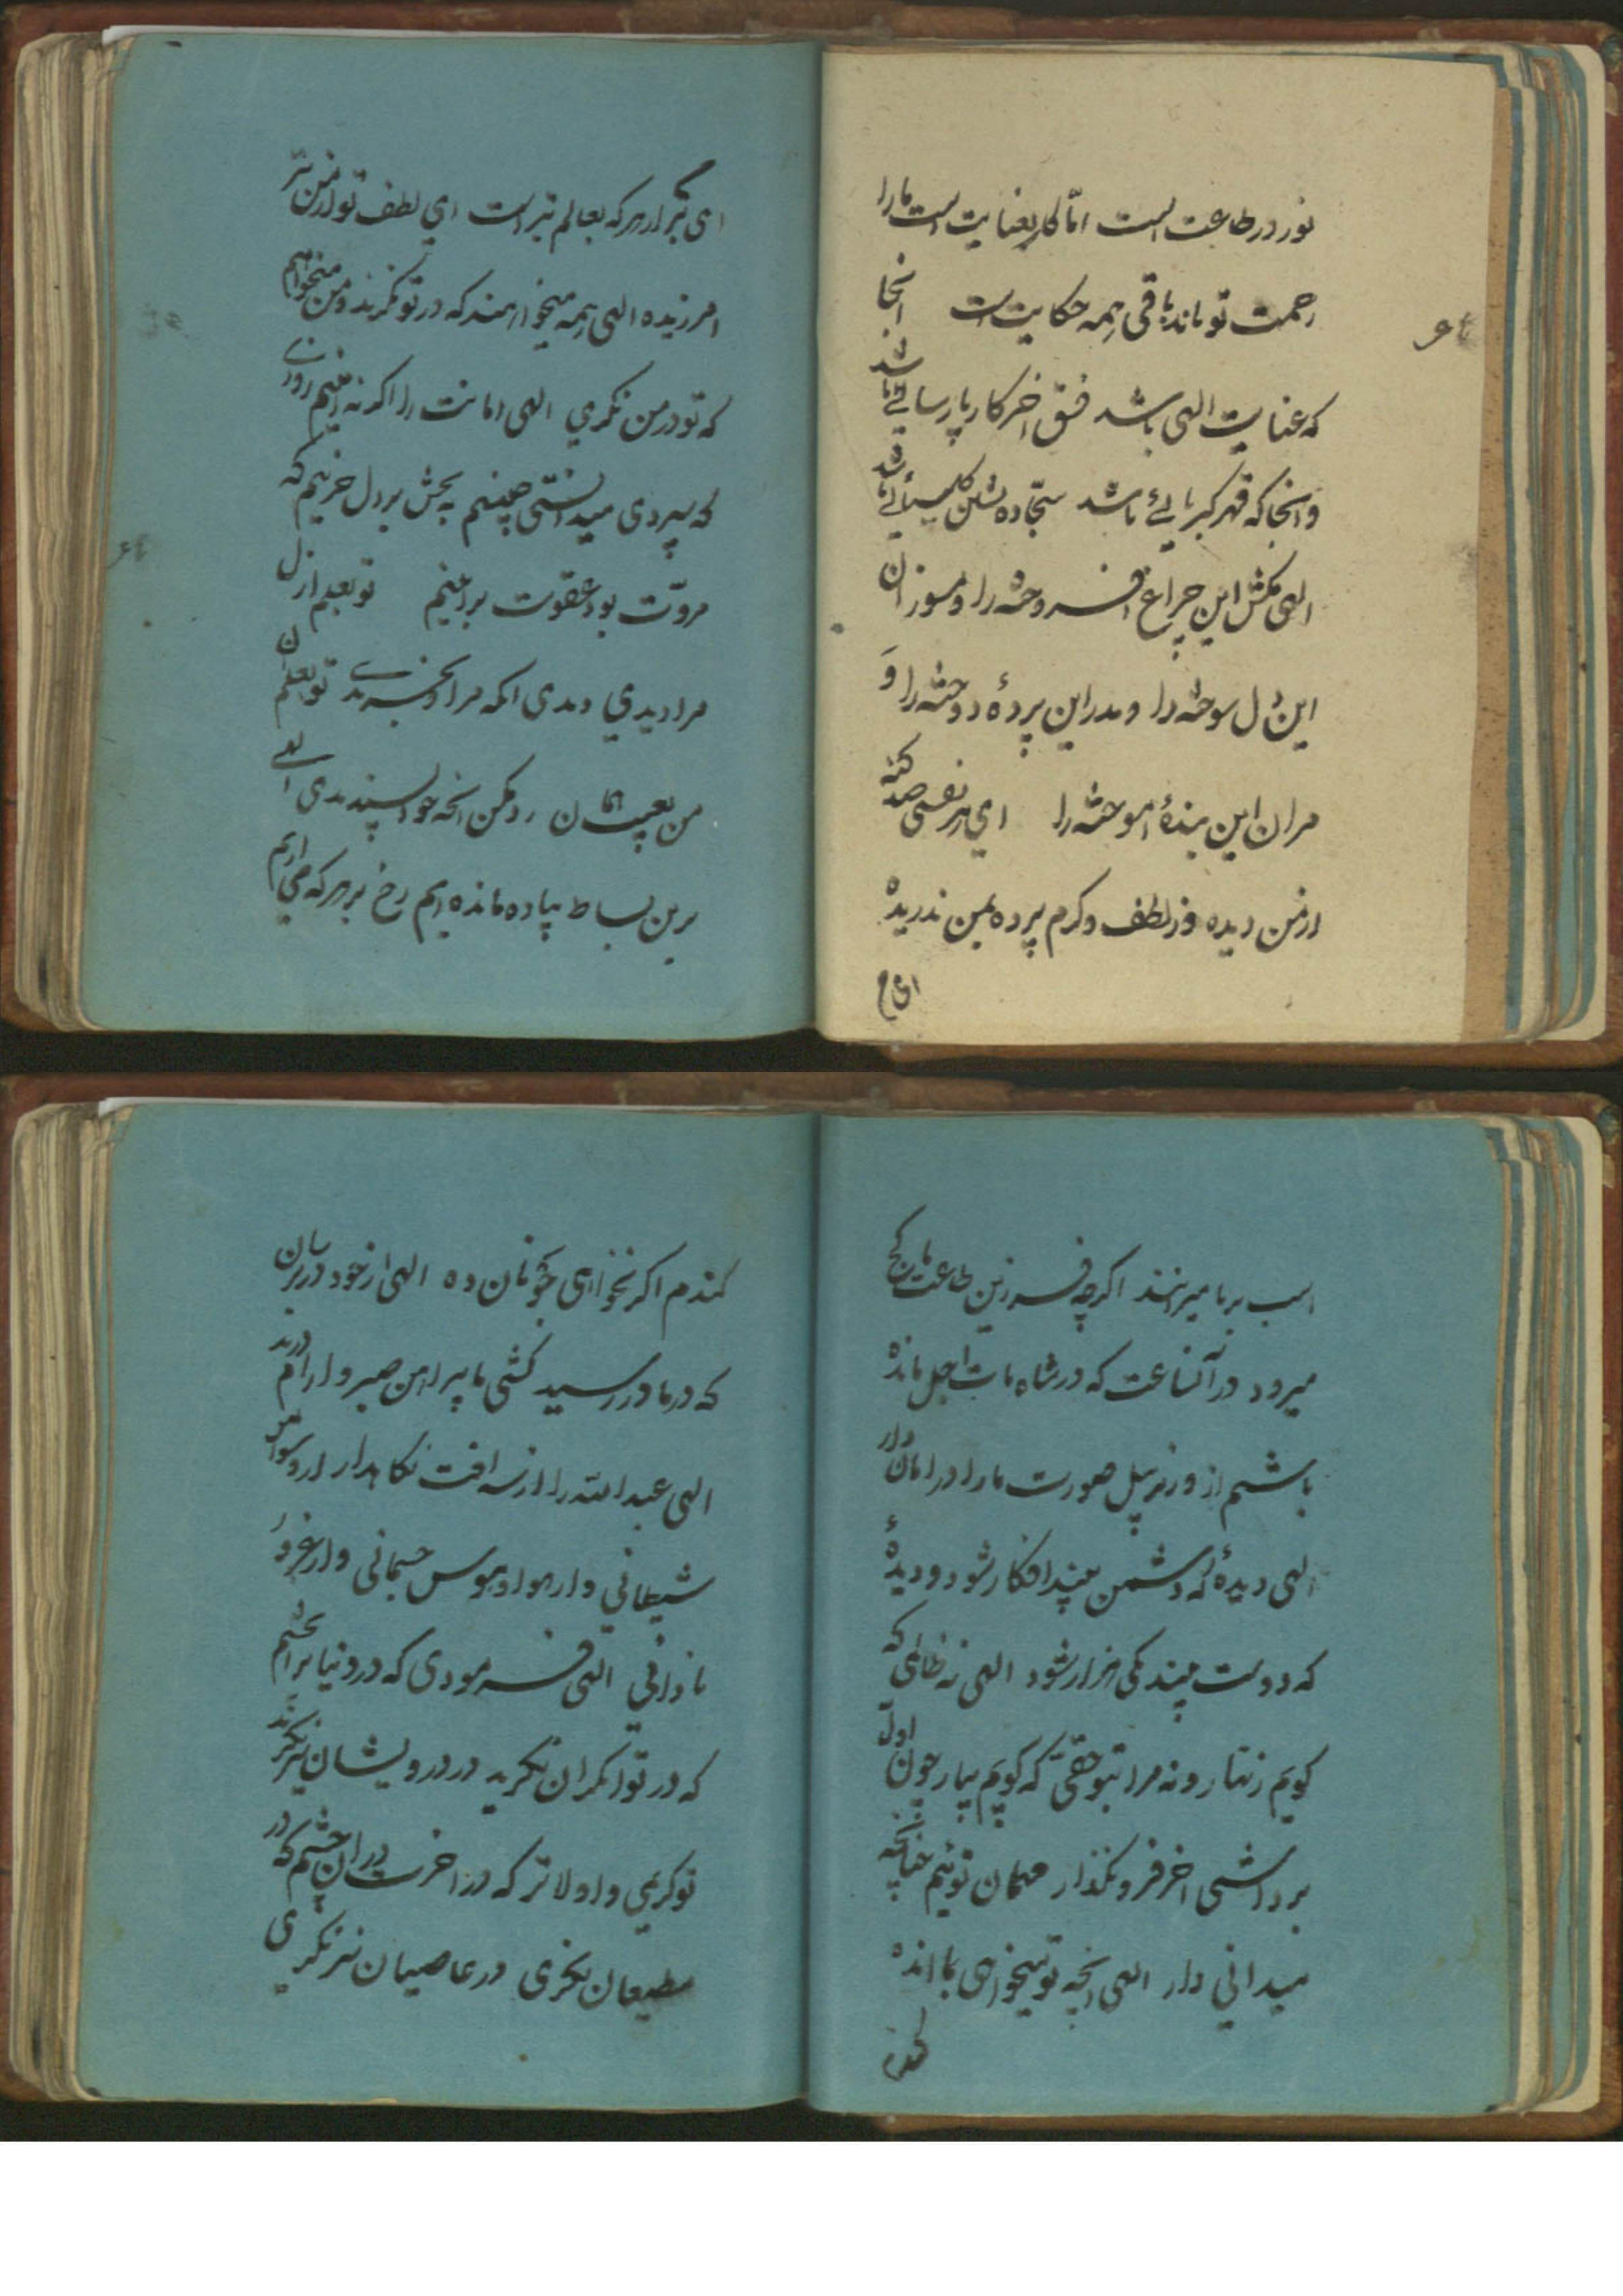 نور در طاعت است اما کار بعنایت است ما را
رحمت تو ماند باقی همه حکایت است انجا
که عنایت الهی باشد فسق اخر کار پارسائی باشد
و انجا که قهر کبریائی باشد سجاده نشین کلیسیائی باشد
الهی مکش این چراغ افروخته را و مسوزان
این دل سوخته را و مدر این پردهٔ دوخته را و
مران این بندهٔ اموخته را ای هر نفسی صد گنه
از من دیده وز لطف و کرم پرده بمن ندریده
ای بتر از هر که بعالم بتر است ای لطف تو از من بتر
امرزیده الهی همه میخواهند که در تو نگرند و من میخواهم
که تو در من نگری الهی امانت را اگر نه امینم روزی
که سپردی میدانستی چنینم به بخش بر دل حزینم که
مروت بود عقوبت بر اینم تو بعلم ازل
مرا دیدی دیدی انکه مرا خریدی تو بعلم ان
من بعیب همان رد مکن انچه خود پسندیدی الهی
برین بساط پیاده مانده ایم رخ بر هر که می اریم
اسب بر ما میرانند اگرچه فرزین طاعت ما کج
میرود در آنساعت که در شاه مات اجل مانده
باشیم از ورزیل صورت ما را در امان دار
الهی دیدهٔ که دشمن بیند افکار شود و دیدهٔ
که دوست بیند یکی هزار شود الهی نه ظالمی که
گویم زنهار و نه مرا بتو حقی که گویم بیار چون اول
برداشتی اخر فرو مگذار مهمان توئیم چنانچه
میدانی دار الهی انچه تو میخواهی بما نده
گندم
گندم اگر نخواهی جو نان ده الهی از خود در بران
که در ما در رسید کشی ما پیراهن صبر و ارام درید
الهی عبدالله را از سه افت نگاهدار از وسواس
شیطانی و از هوا و هوس جسمانی و از غرور
نادانی الهی فرمودی که در دنیا بر ان چشم
که در توانگران نگرید در درویشان نیز نگرند
تو کریمی و اولاتر که در اخرت بدران چشم که در
مطیعان نگری در عاصیان نیز نگری